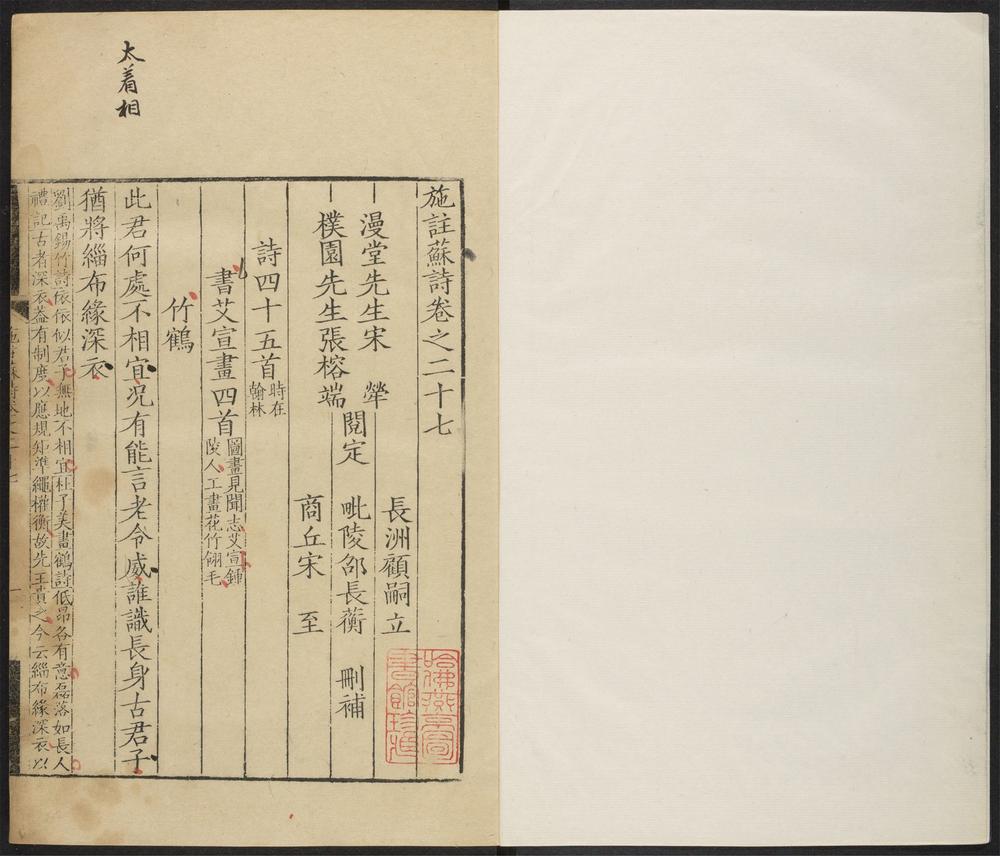 太着相
施註蘇詩卷之二十七
漫堂先生宋犖
樸園先生張榕端
閱定
長洲顧嗣立
毗陵邵長蘅
商丘宋至
刪補
詩四十五首
時在
翰林
書艾宣畫四首
圖畫見聞志艾宣鍾
陵人工畫花竹翎毛
竹鶴
此君何處不相宜况有能言老令威誰識長身古君子
猶將緇布緣深衣
劉禹錫竹詩依依似君子無地不相宜杜子美畫鶴詩低昂各有意磊落如長人
禮記古者深衣蓋有制度以應規矩準繩權衡故先王貴之今云緇布緣深衣以
哈佛燕京圖
書館珍藏